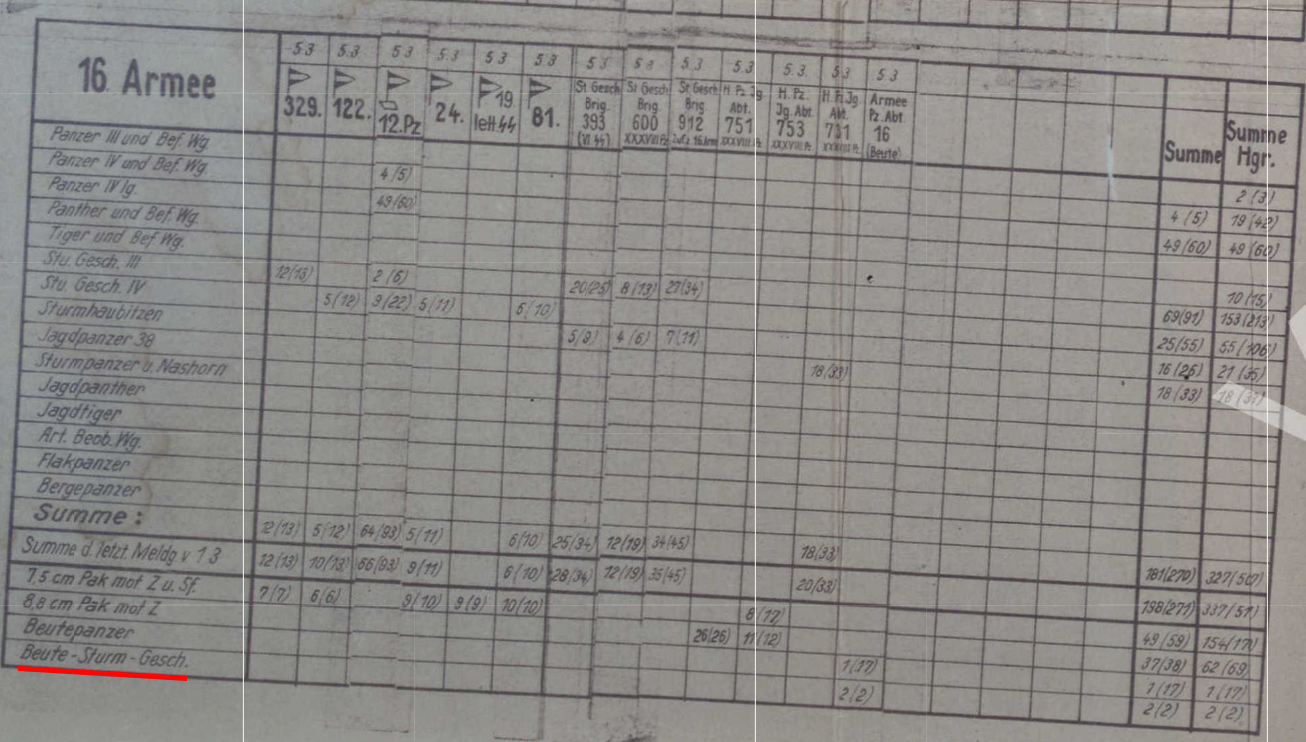 16. Armee
5.3 5.3. 5.3 5.3 5.3 5.3 5.3 5.3 5.3 5.3. 5.3. 5.3 5.3
329. 122. 12.Pz 24. 19. lett.SS 81.
St. Gesch Brig. 393 (VI SS)
St. Gesch Brig. 600 XXXVIII Pz
St. Gesch Brig. 912
H. Pz. Jg Abt. 751 XXXVIII Pz.
H. Pz. Jg. Abt. 753 XXXVIII Pz.
H. Pz. Jg Abt. 731 XXXVIII Pz.
Armee Pz. Abt 16 (Beute)
Summe
Summe Hgr.
Panzer III und Bef. Wg 2 (3)
Panzer IV und Bef. Wg. 4 (5) 4 (5) 19 (42)
Panzer IV lg. 49 (60) 49 (60) 49 (60)
Panther und Bef. Wg.
Tiger und Bef Wg. 10 (15)
Stu. Gesch. III 12(13) 2 (6) 20(25) 8 (13) 27(34) 69(91) 153 (213)
Stu. Gesch. IV 5(12) 9 (22) 5 (11) 6 (10) 25(55) 55 (106)
Sturmhaubitzen 5(9) 4 (6) 7(11) 16 (26) 21 (35)
Jagdpanzer 38 18 (33) 18 (33) 18 (37)
Sturmpanzer u. Nashorn
Jagdpanther
Jagdtiger
Art. Beob. Wg.
Flakpanzer
Bergepanzer
Summe : 12(13) 5(12) 64(93) 5(11) 6(10) 25(34) 12(19) 34(45) 18(33) 181(270) 327(507)
Summe d. letzt Meldg v 1 3 12(13) 10(13) 66(93) 9(11) 6 (10) 28(34) 12(19) 35(45) 20(33) 198(271) 337(511)
7,5 cm Pak mot Z u. Sf. 7(7) 6(6) 9(10) 9(9) 10(10) 8(17) 49(59) 154(170)
8,8 cm Pak mot Z 26(26) 11(12) 37(38) 62 (69)
Beutepanzer 1(17) 1(17) 1(17)
Beute - Sturm - Gesch. 2(2) 2(2) 2(2)